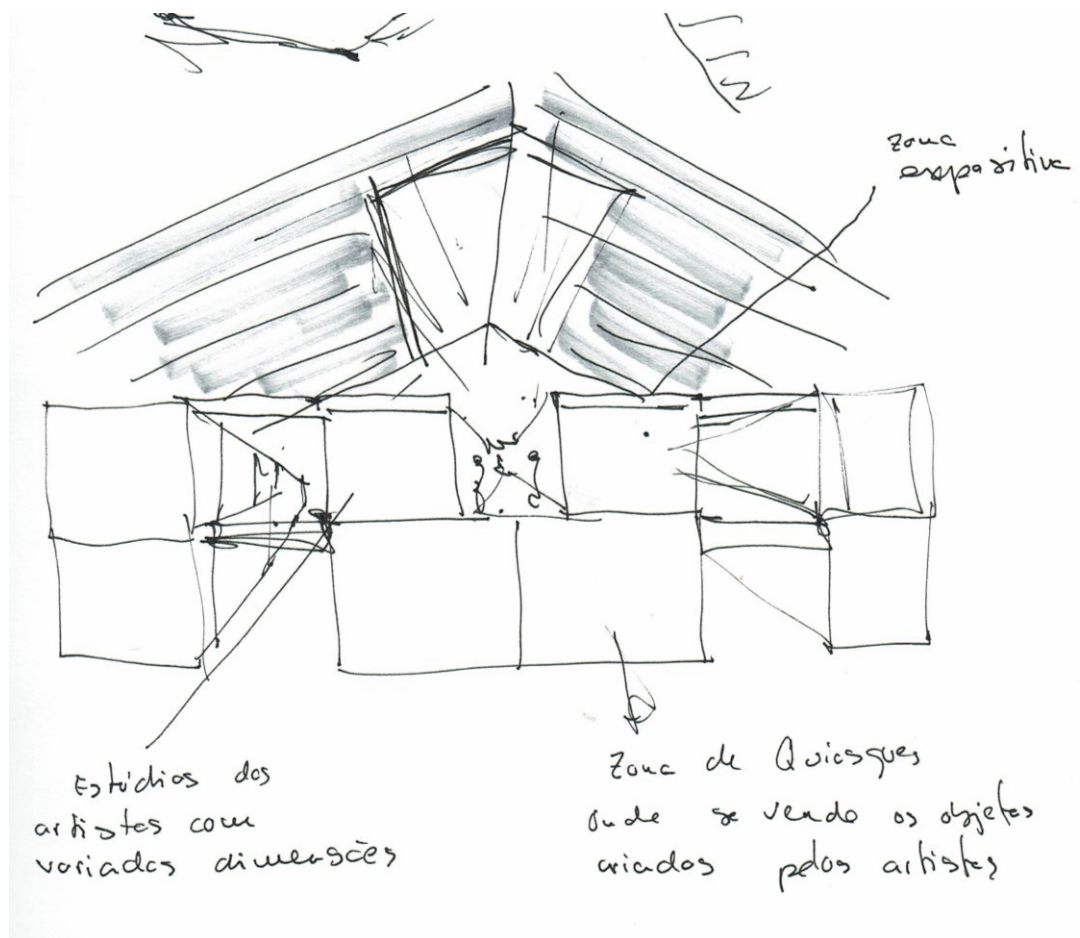 zona
expositiva
Estúdios dos
artistas com
variadas dimensões
Zona de Quiosques
onde se vende os objetos
criados pelos artistas